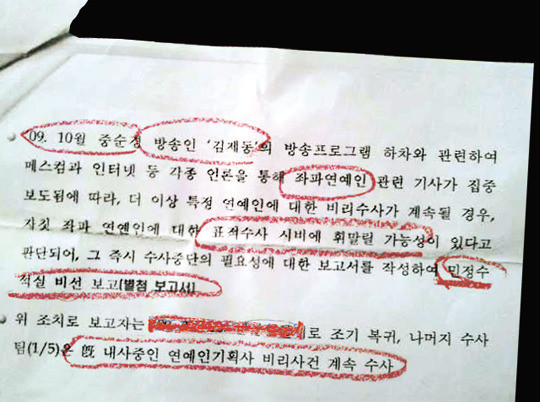 09. 10월 중순경 방송인 '김제동'의 방송프로그램 하차와 관련하여
메스컴과 인터넷 등 각종 언론을 통해 좌파연예인 관련 기사가 집중
보도됨에 따라, 더 이상 특정 연예인에 대한 비리수사가 계속될 경우,
자칫 좌파 연예인에 대한 표적수사 시비에 휘말릴 가능성이 있다고
판단되어, 그 즉시 수사중단의 필요성에 대한 보고서를 작성하여 민정수
석실 비선 보고(별첨 보고서)
위 조치로 보고자는 로 조기 복귀, 나머지 수사
팀(1/5)은 旣 내사중인 연예인기획사 비리사건 계속 수사